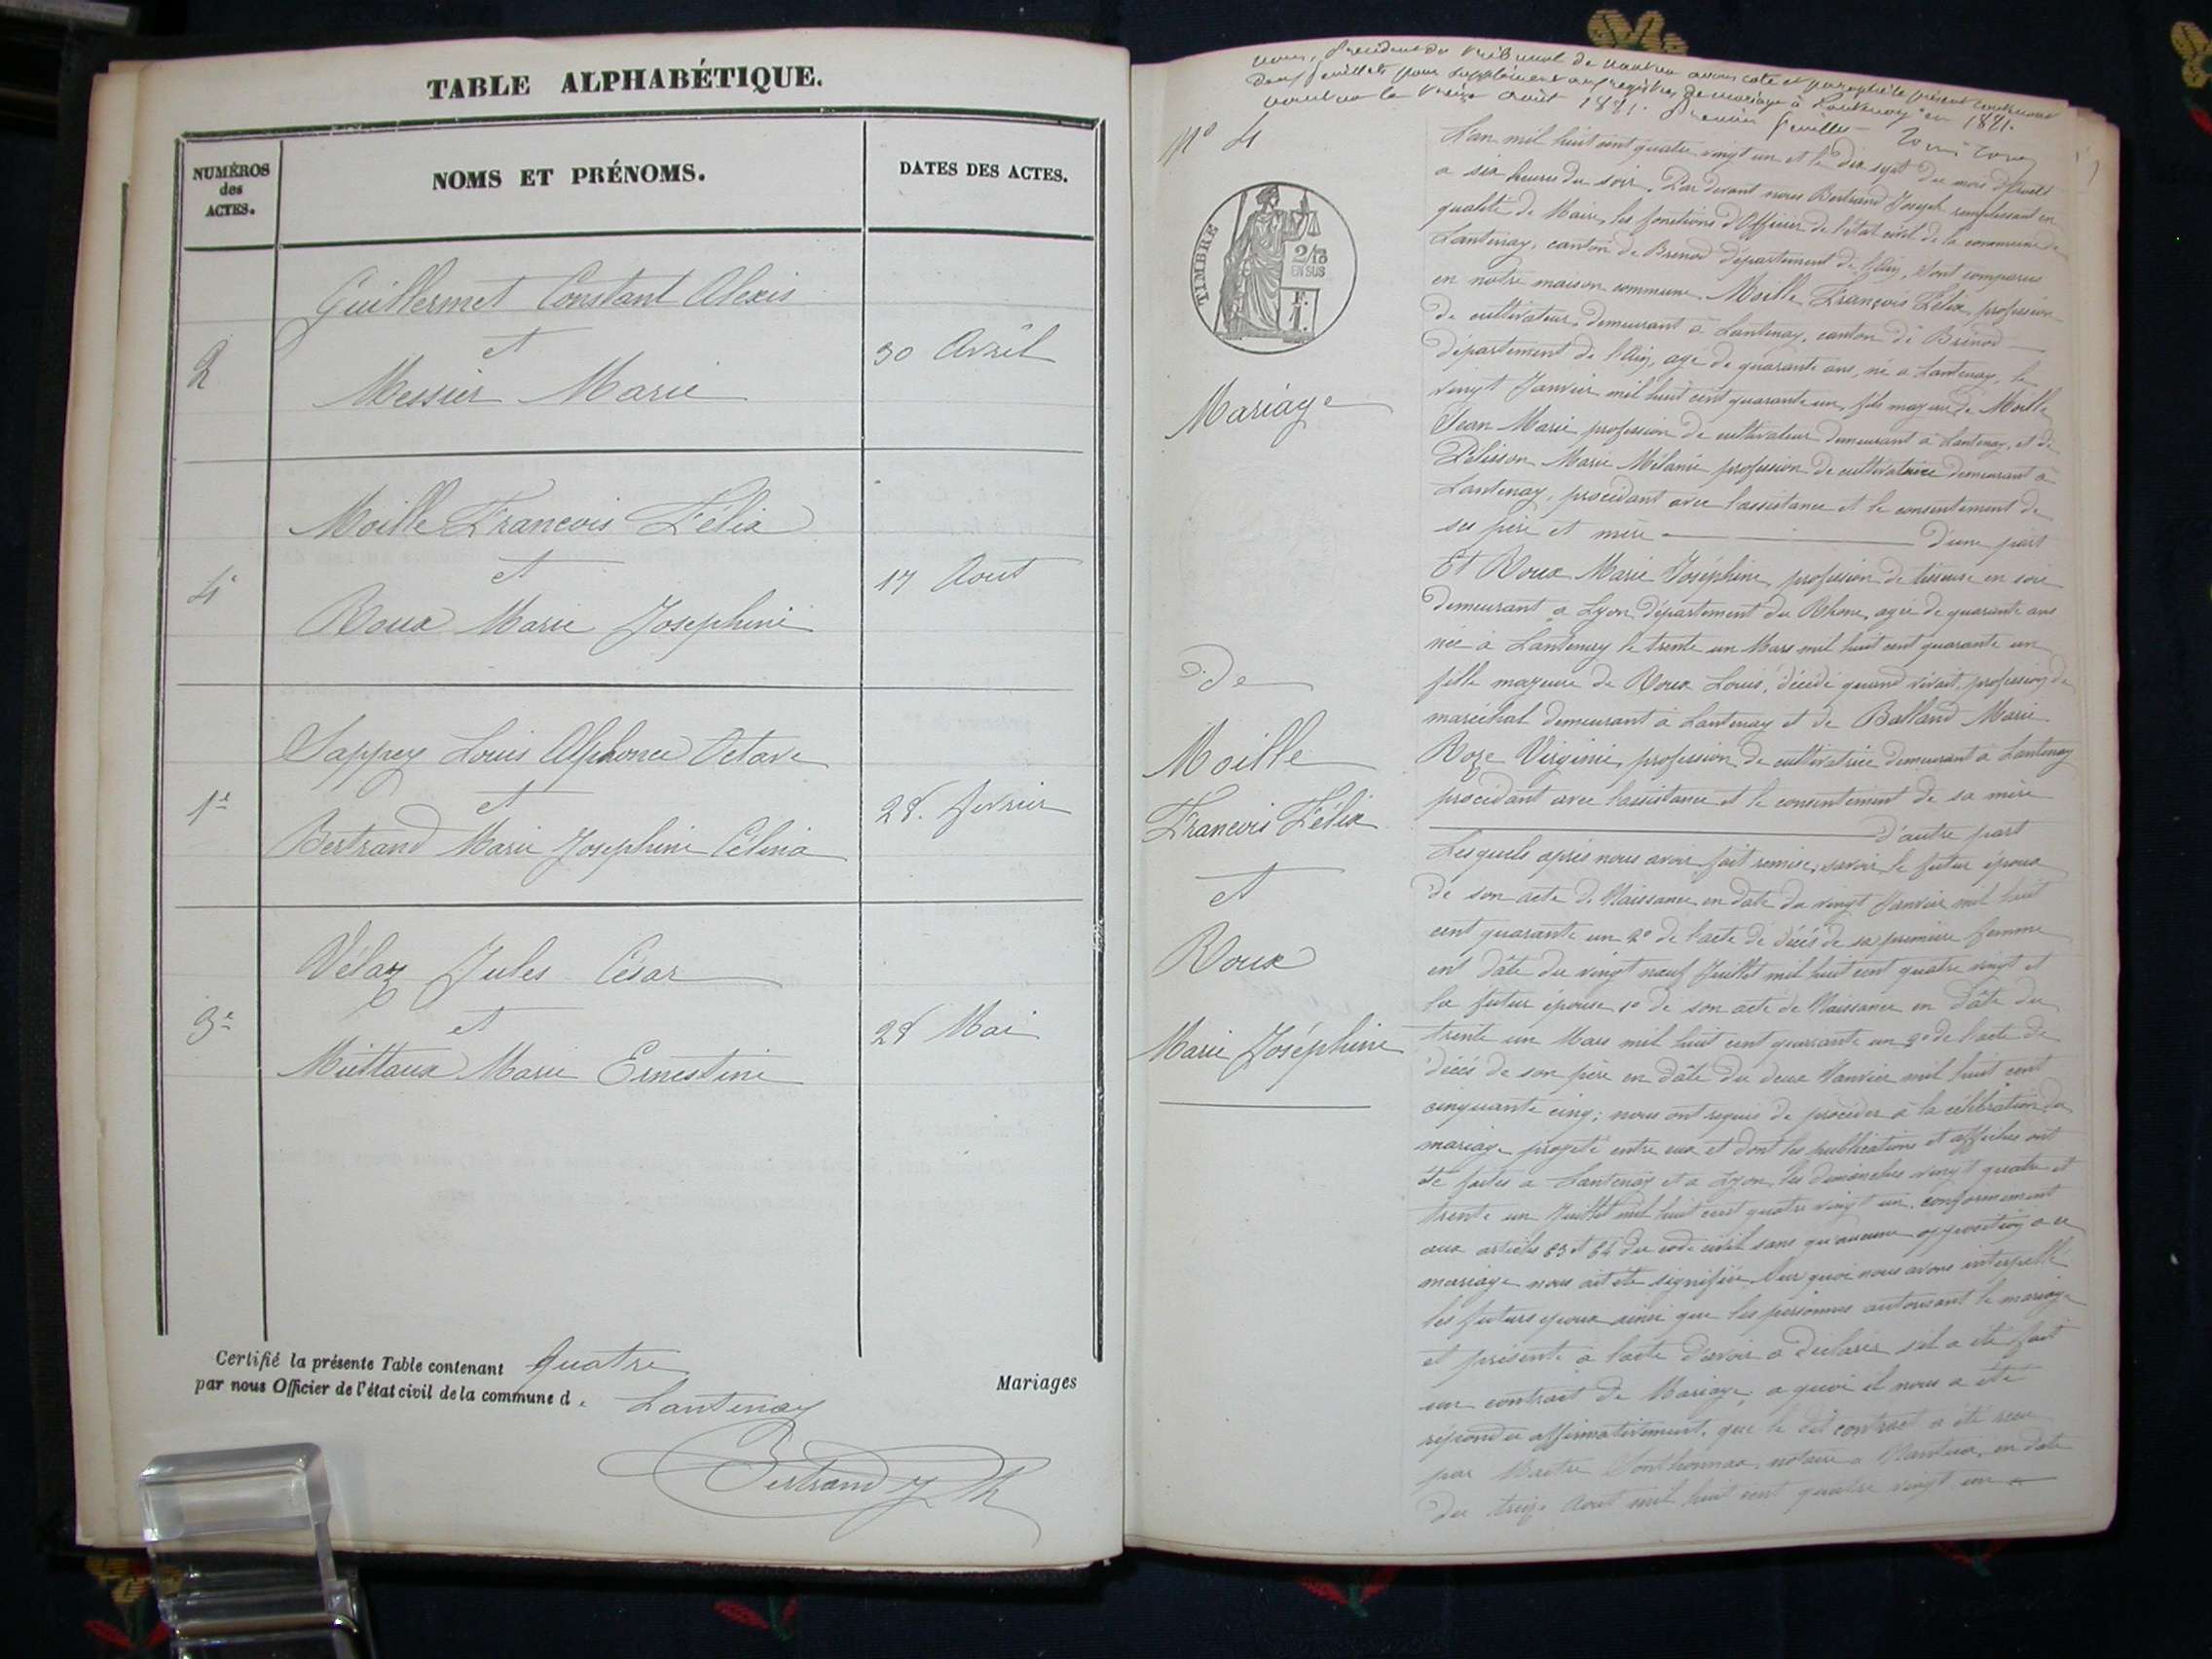 TABLE ALPHABÉTIQUE.
NUMÉROS
des
ACTES.
NOMS ET PRÉNOMS.
DATES DES ACTES.
Guillermet Constant Alexis
et
2
30 Avril
Messier Marie
Moille Francois Félix
et
4e
17 Aout
Roux Marie Josephine
Sappey Louis Alphonce Octave
et
1e
28. fevrier
Bertrand Marie Josephine Célina
Vélay Jules César
et
3e
28 Mai
Muttaux Marie Ernestine
Certifié la présente Table contenant Quatre
Mariages
par nous Officier de l'état civil de la commune d. Lantenay
Bertrand Jh
nous, Président du Tribunal de Nantua avons coté et paraphé le présent contenant
deux feuillets pour supplément au registre de mariage à Lantenay en 1881.
Nantua le treize Août 1881. Premier feuillet
No 4
TIMBRE
2/10
EN SUS
F.
1.
Mariage
de
Moille
Francois Félix
et
Roux
Marie Joséphine
L'an mil huit cent quatre vingt un et le dix sept du mois d'Aout
a six heures du soir. Par devant nous Bertrand Joseph remplissant en
qualité de Maire, les fonctions d'Officier de l'état civil de la commune de
Lantenay, canton de Brenod département de l'Ain, sont comparus
en notre maison commune. Moille François Félix, profession
de cultivateur, demeurant à Lantenay, canton de Brénod
département de l'Ain, agé de quarante ans, né a Lantenay, le
vingt Janvier mil huit cent quarante un, fils majeur de Moille
Jean Marie profession de cultivateur demeurant à Lantenay, et de
Pélisson Marie Mélanie profession de cultivatrice demeurant à
Lantenay, procédant avec l'assistance et le consentement de
ses père et mère d'une part
Et Roux Marie Joséphine, profession de tisseuse en soie
demeurant a Lyon département du Rhone, agée de quarante ans
née à Lantenay le trente un Mars mil huit cent quarante un
fille majeure de Roux Louis, décédé quand vivait, profession de
maréchal demeurant à Lantenay et de Balland Marie
Roze Virginie, profession de cultivatrice demeurant à Lantenay
procédant avec l'assistance et le consentement de sa mère
d'autre part
Lesquels après nous avoir fait remise, savoir, le futur époux
de son acte de Naissance en date du vingt Janvier mil huit
cent quarante un 2o de l'acte de décès de sa première femme
ent date du vingt neuf Juillet mil huit cent quatre vingt et
la futur épouse 1o de son acte de Naissance en date du
trente un Mars mil huit cent quarante un 2o de l'acte de
décès de son père en date du deux Janvier mil huit cent
cinquante cinq; nous ont requis de procéder à la célébration du
mariage projeté entre eux et dont les publications et affiches ont
été faites a Lantenay et a Lyon les dimanches vingt quatre et
trente un Juillet mil huit cent quatre vingt un, conformement
aux articles 63 et 64 du code civil sans qu'aucune opposition a ce
mariage nous ait été signifiée. Sur quoi nous avons interpellé
les futurs époux ainsi que les personnes autorisant le mariage
et présente a l'acte d'avoir a déclarer s'il a été fait
un contrait de Mariage; a quoi il nous a été
répondu affirmativement, que le dit contract a été recu
par Maitre Sonthonnax, notaire a Nantua, en date
du treize Aout mil huit cent quatre vingt un